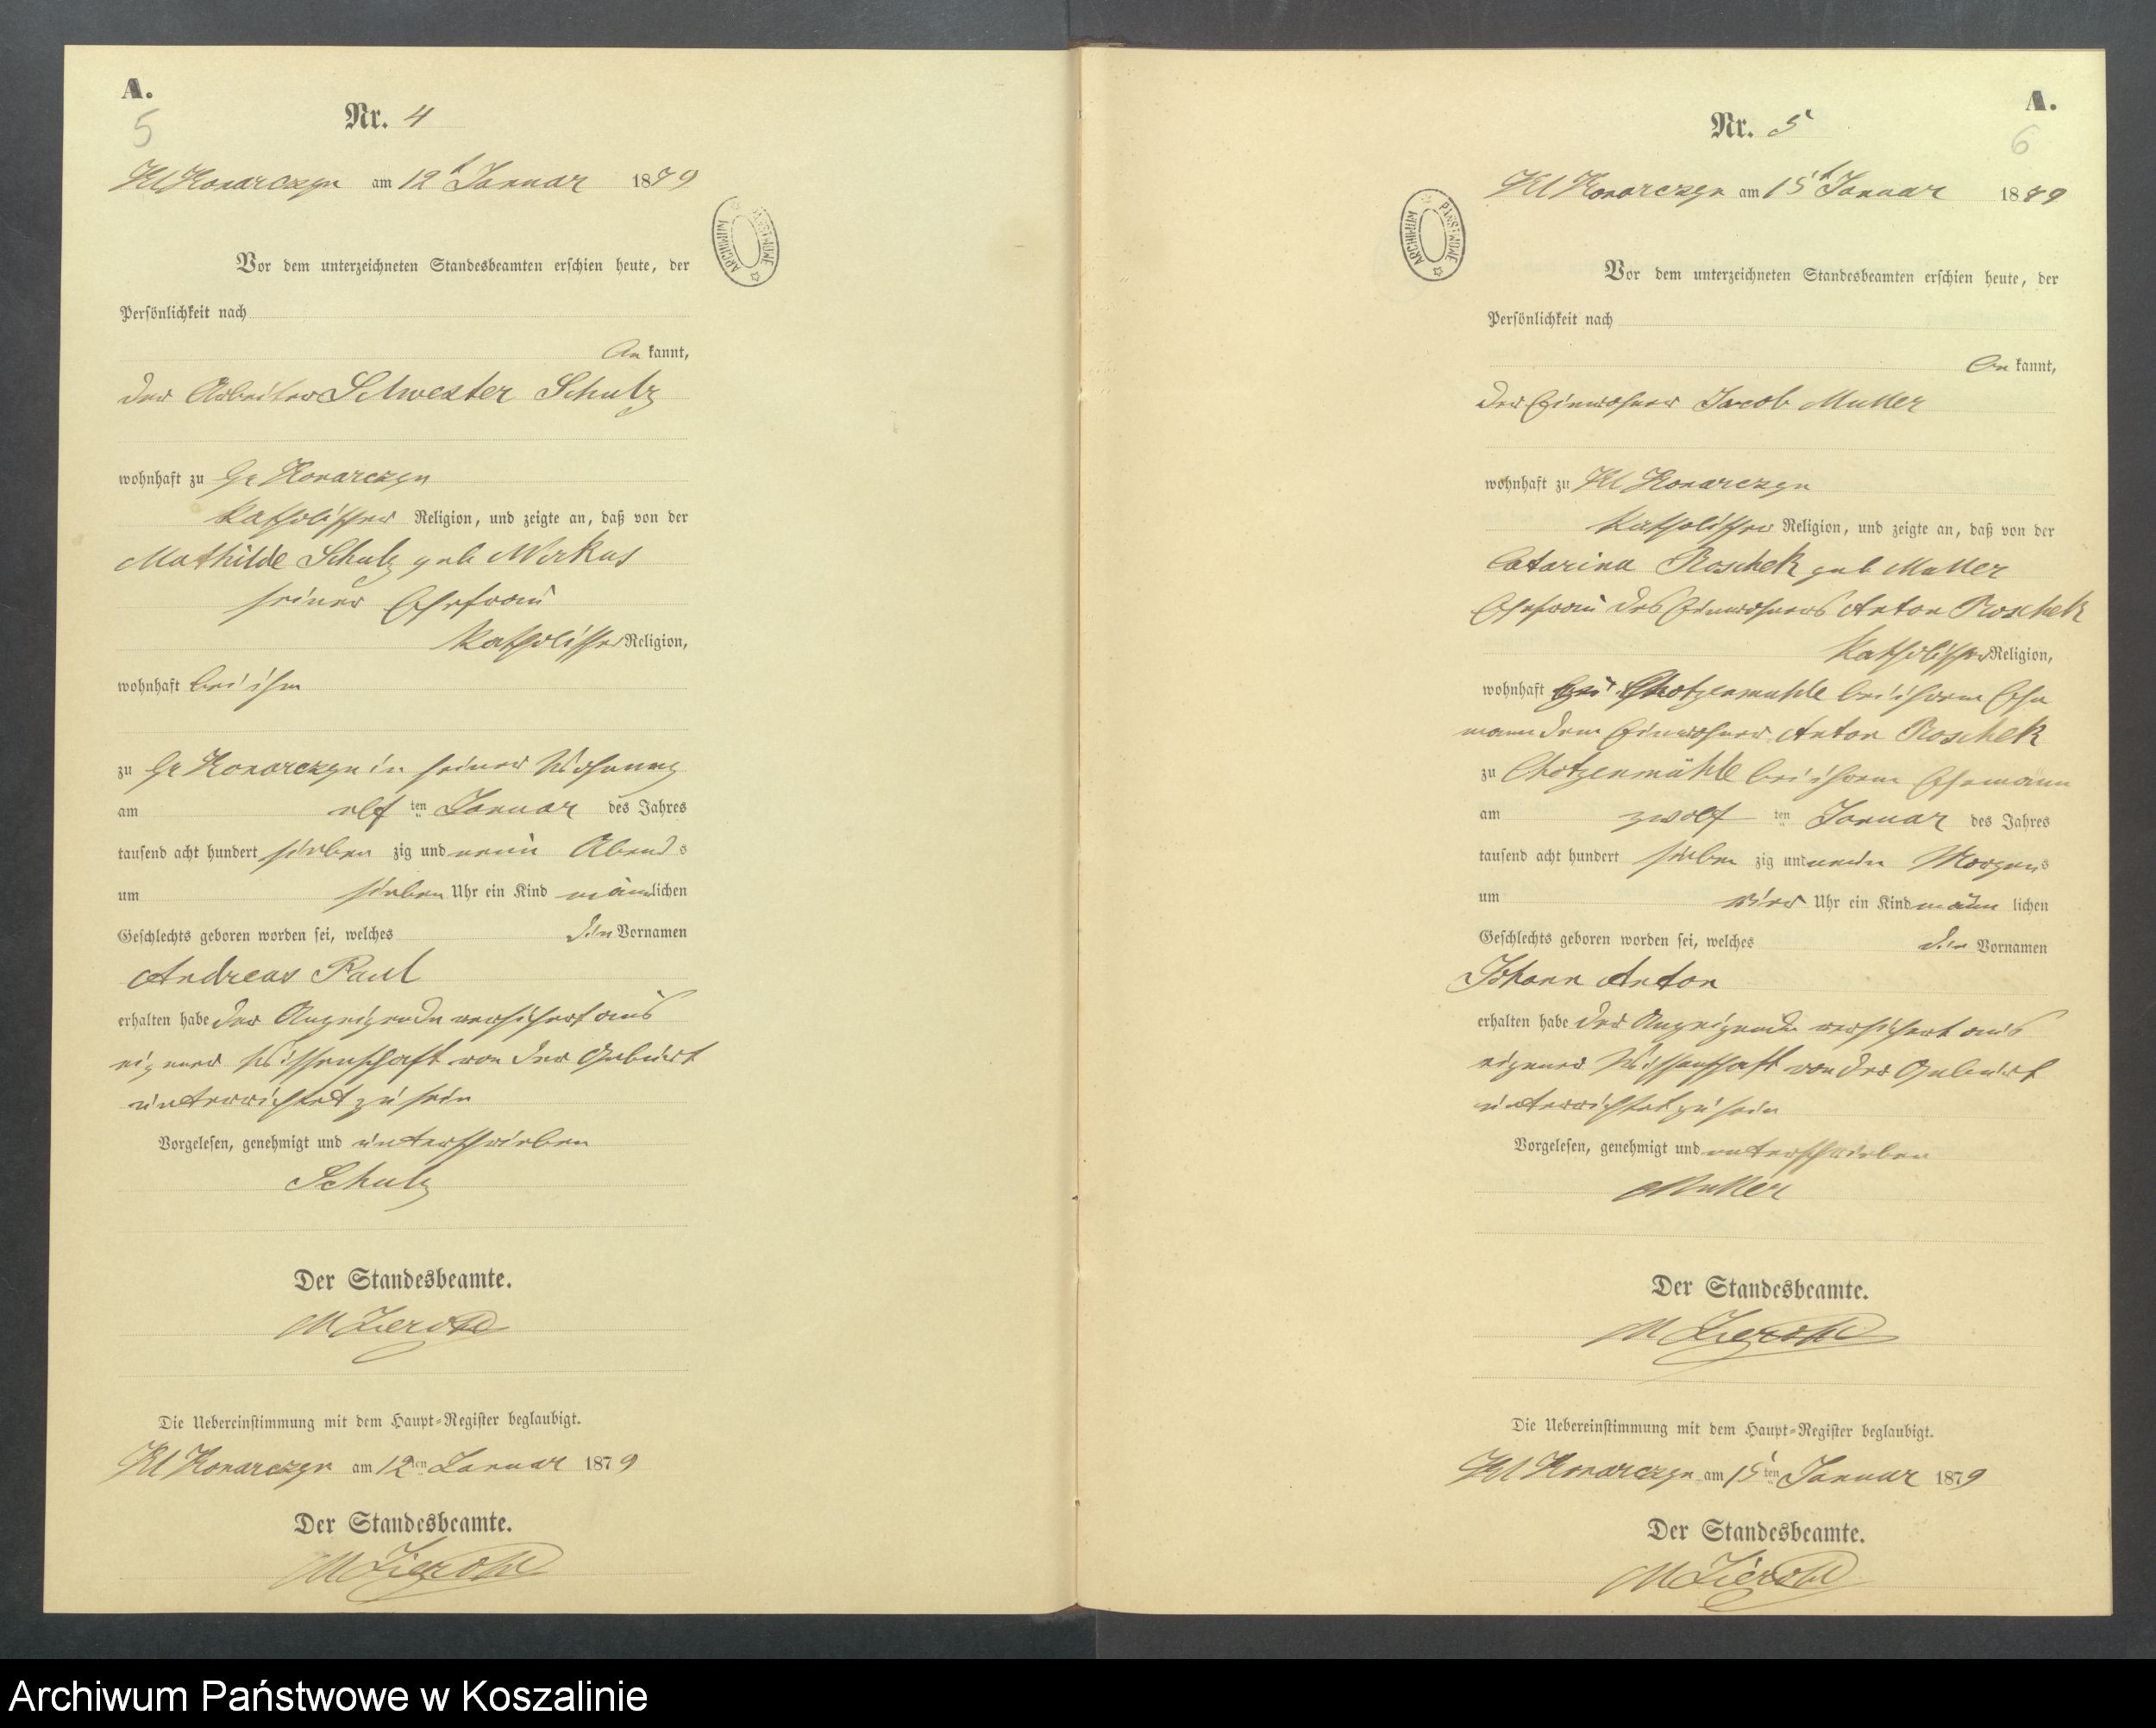 A.
5
Nr. 4
Kl Konarczyn am 12t Januar 1879
Vor dem unterzeichneten Standesbeamten erschien heute, der
Persönlichkeit nach
kannt,
der Arbeiter Silwester Schulz
wohnhaft zu Gr Konarczyn
katholischer Religion, und zeigte an, daß von der
Mathilde Schulz geb
seiner Ehefrau
katholischer Religion,
wohnhaft bei ihm
zu Gr Konarczyn in seiner Wohnung
am elf ten Januar des Jahres
tausend acht hundert sieben zig und neun Abends
um sieben Uhr ein Kind männlichen
Geschlechts geboren worden sei, welches die Vornamen
Andreas Paul
erhalten habe der Anzeigende versichert aus
eigener Wissenschaft von der Geburt
unterrichtet zu sein
Vorgelesen, genehmigt und unterschrieben
Schulz
Der Standesbeamte.
Die Uebereinstimmung mit dem Haupt-Register beglaubigt.
Kl Konarczyn am 12ten Januar 1879
Der Standesbeamte.
A.
6
Nr. 5
Kl Konarczyn am 15t Januar 1879
ARCHIWUM PAŃSTWOWE
Vor dem unterzeichneten Standesbeamten erschien heute, der
Persönlichkeit nach
kannt,
der Einwohner Jacob Muller
wohnhaft zu Kl Konarczyn
katholischer Religion, und zeigte an, daß von der
Catarina Roschek geb Muller
Ehefrau des Einwohners Anton Roschek
katholischer Religion,
wohnhaft Chotzenmühle bei ihrem Ehe
mann dem Einwohner Anton Roschek
zu Chotzenmühle bei ihrem Ehemann
am zwölf ten Januar des Jahres
tausend acht hundert sieben zig und neun Morgens
um vier Uhr ein Kind männ lichen
Geschlechts geboren worden sei, welches die Vornamen
Johann Anton
erhalten habe der Anzeigende versichert aus
eigener Wissenschaft von der Geburt
unterrichtet zu sein
Vorgelesen, genehmigt und unterschrieben
Muller
Der Standesbeamte.
Die Uebereinstimmung mit dem Haupt-Register beglaubigt.
Kl Konarczyn am 15ten Januar 1879
Der Standesbeamte.
Archiwum Państwowe w Koszalinie